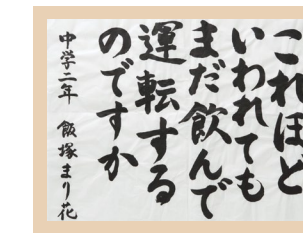 これほど
いわれても
まだ飲んで
運転する
のですか
中学二年 飯塚まり花